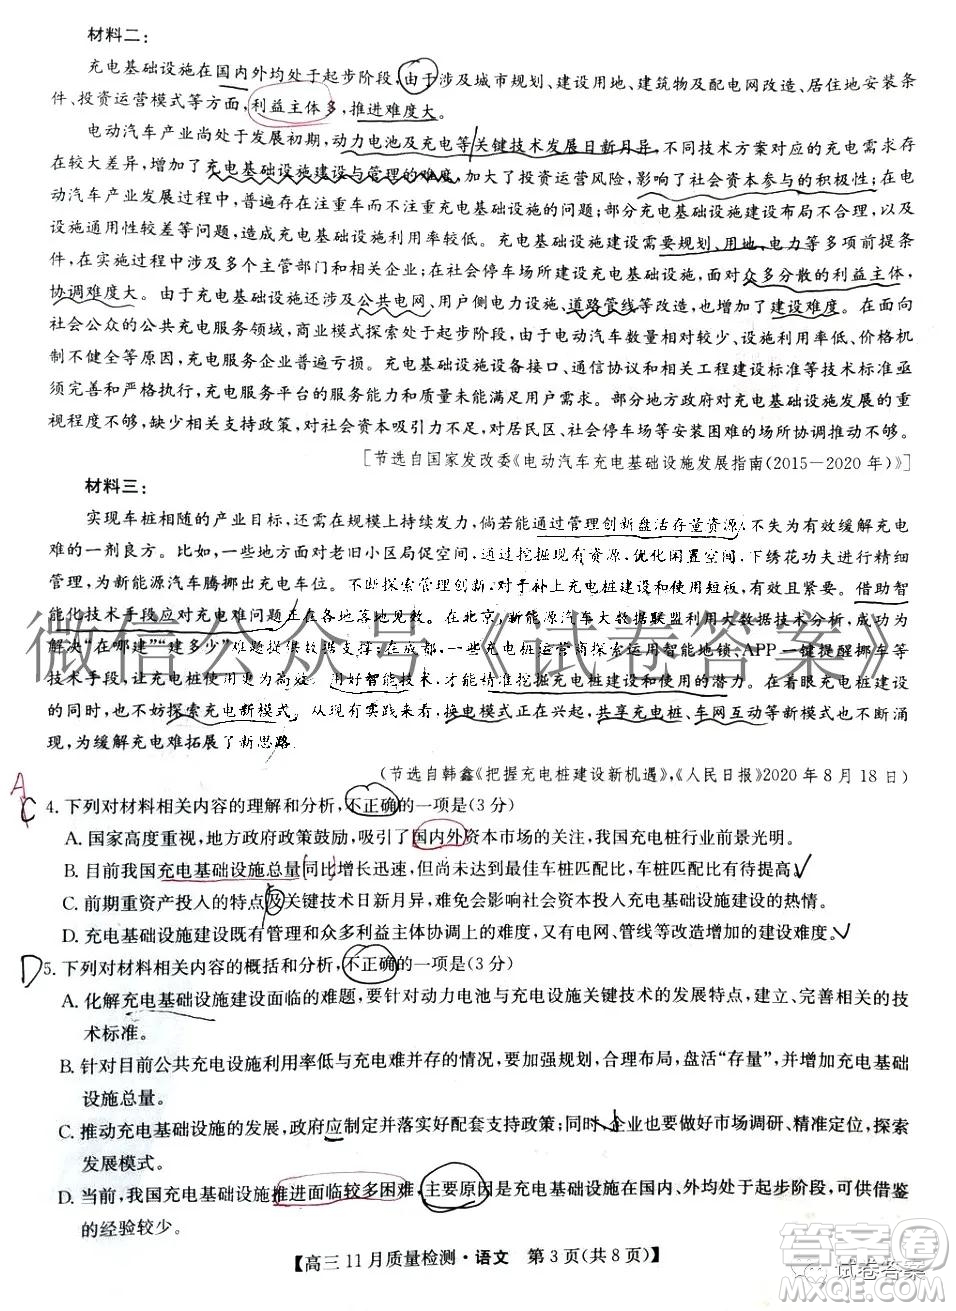 材料二：
充电基础设施在国内外均处于起步阶段,由于涉及城市规划、建设用地、建筑物及配电网改造、居住地安装条
件、投资运营模式等方面,利益主体多,推进难度大。
电动汽车产业尚处于发展初期,动力电池及充电等关键技术发展日新月异,不同技术方案对应的充电需求存
在较大差异,增加了充电基础设施建设与管理的难度,加大了投资运营风险,影响了社会资本参与的积极性;在电
动汽车产业发展过程中,普遍存在注重车而不注重充电基础设施的问题;部分充电基础设施建设布局不合理,以及
设施通用性较差等问题,造成充电基础设施利用率较低。充电基础设施建设需要规划、用地、电力等多项前提条
件,在实施过程中涉及多个主管部门和相关企业;在社会停车场所建设充电基础设施,面对众多分散的利益主体,
协调难度大。由于充电基础设施还涉及公共电网、用户侧电力设施、道路管线等改造,也增加了建设难度。在面向
社会公众的公共充电服务领域,商业模式探索处于起步阶段,由于电动汽车数量相对较少、设施利用率较低、价格机
制不健全等原因,充电服务企业普遍亏损。充电基础设施设备接口、通信协议和相关工程建设标准等技术标准亟
须完善和严格执行,充电服务平台的服务能力和质量未能满足用户需求。部分地方政府对充电基础设施发展的重
视程度不够,缺少相关支持政策,对社会资本吸引力不足,对居民区、社会停车场等安装困难的场所协调推动不够。
[节选自国家发改委《电动汽车充电基础设施发展指南(2015—2020年)》]
材料三：
实现车桩相随的产业目标,还需在规模上持续发力,倘若能通过管理创新盘活存量资源,不失为有效缓解充电
难的一剂良方。比如,一些地方面对老旧小区局促空间,通过挖掘现有资源,优化闲置空间,下绣花功夫进行精细
管理,为新能源汽车腾挪出充电车位。不断探索管理创新,对于补上充电桩建设和使用短板,有效且紧要。借助智
能化技术手段应对充电难问题正在各地落地见效。在北京,新能源汽车大数据联盟利用大数据技术分析,成功为
解决“在哪建”“建多少”难题提供数据支撑;在成都,一些充电桩运营商探索运用智能地锁、APP一键提醒挪车等
技术手段,让充电桩使用更为高效。用好智能技术,才能精准挖掘充电桩建设和使用的潜力。在着眼充电桩建设
的同时,也不妨探索充电新模式。从现有实践来看,换电模式正在兴起,共享充电桩、车网互动等新模式也不断涌
现,为缓解充电难拓展了新思路。
(节选自韩鑫《把握充电桩建设新机遇》,《人民日报》2020年8月18日)
A
C 4. 下列对材料相关内容的理解和分析,不正确的一项是(3分)
A. 国家高度重视,地方政府政策鼓励,吸引了国内外资本市场的关注,我国充电桩行业前景光明。
B. 目前我国充电基础设施总量同比增长迅速,但尚未达到最佳车桩匹配比,车桩匹配比有待提高。
C. 前期重资产投入的特点及关键技术日新月异,难免会影响社会资本投入充电基础设施建设的热情。
D. 充电基础设施建设既有管理和众多利益主体协调上的难度,又有因电网、管线等改造增加的建设难度。
D 5. 下列对材料相关内容的概括和分析,不正确的一项是(3分)
A. 化解充电基础设施建设面临的难题,要针对动力电池与充电设施关键技术的发展特点,建立、完善相关的技
术标准。
B. 针对目前公共充电设施利用率低与充电难并存的情况,要加强规划,合理布局,盘活“存量”,并增加充电基础
设施总量。
C. 推动充电基础设施的发展,政府应制定并落实好配套支持政策;同时,企业也要做好市场调研、精准定位,探索
发展模式。
D. 当前,我国充电基础设施推进面临较多困难,主要原因是充电基础设施在国内、外均处于起步阶段,可供借鉴
的经验较少。
【高三11月质量检测·语文 第3页(共8页)】
微信公众号《试卷答案》
答案圈
试卷答案